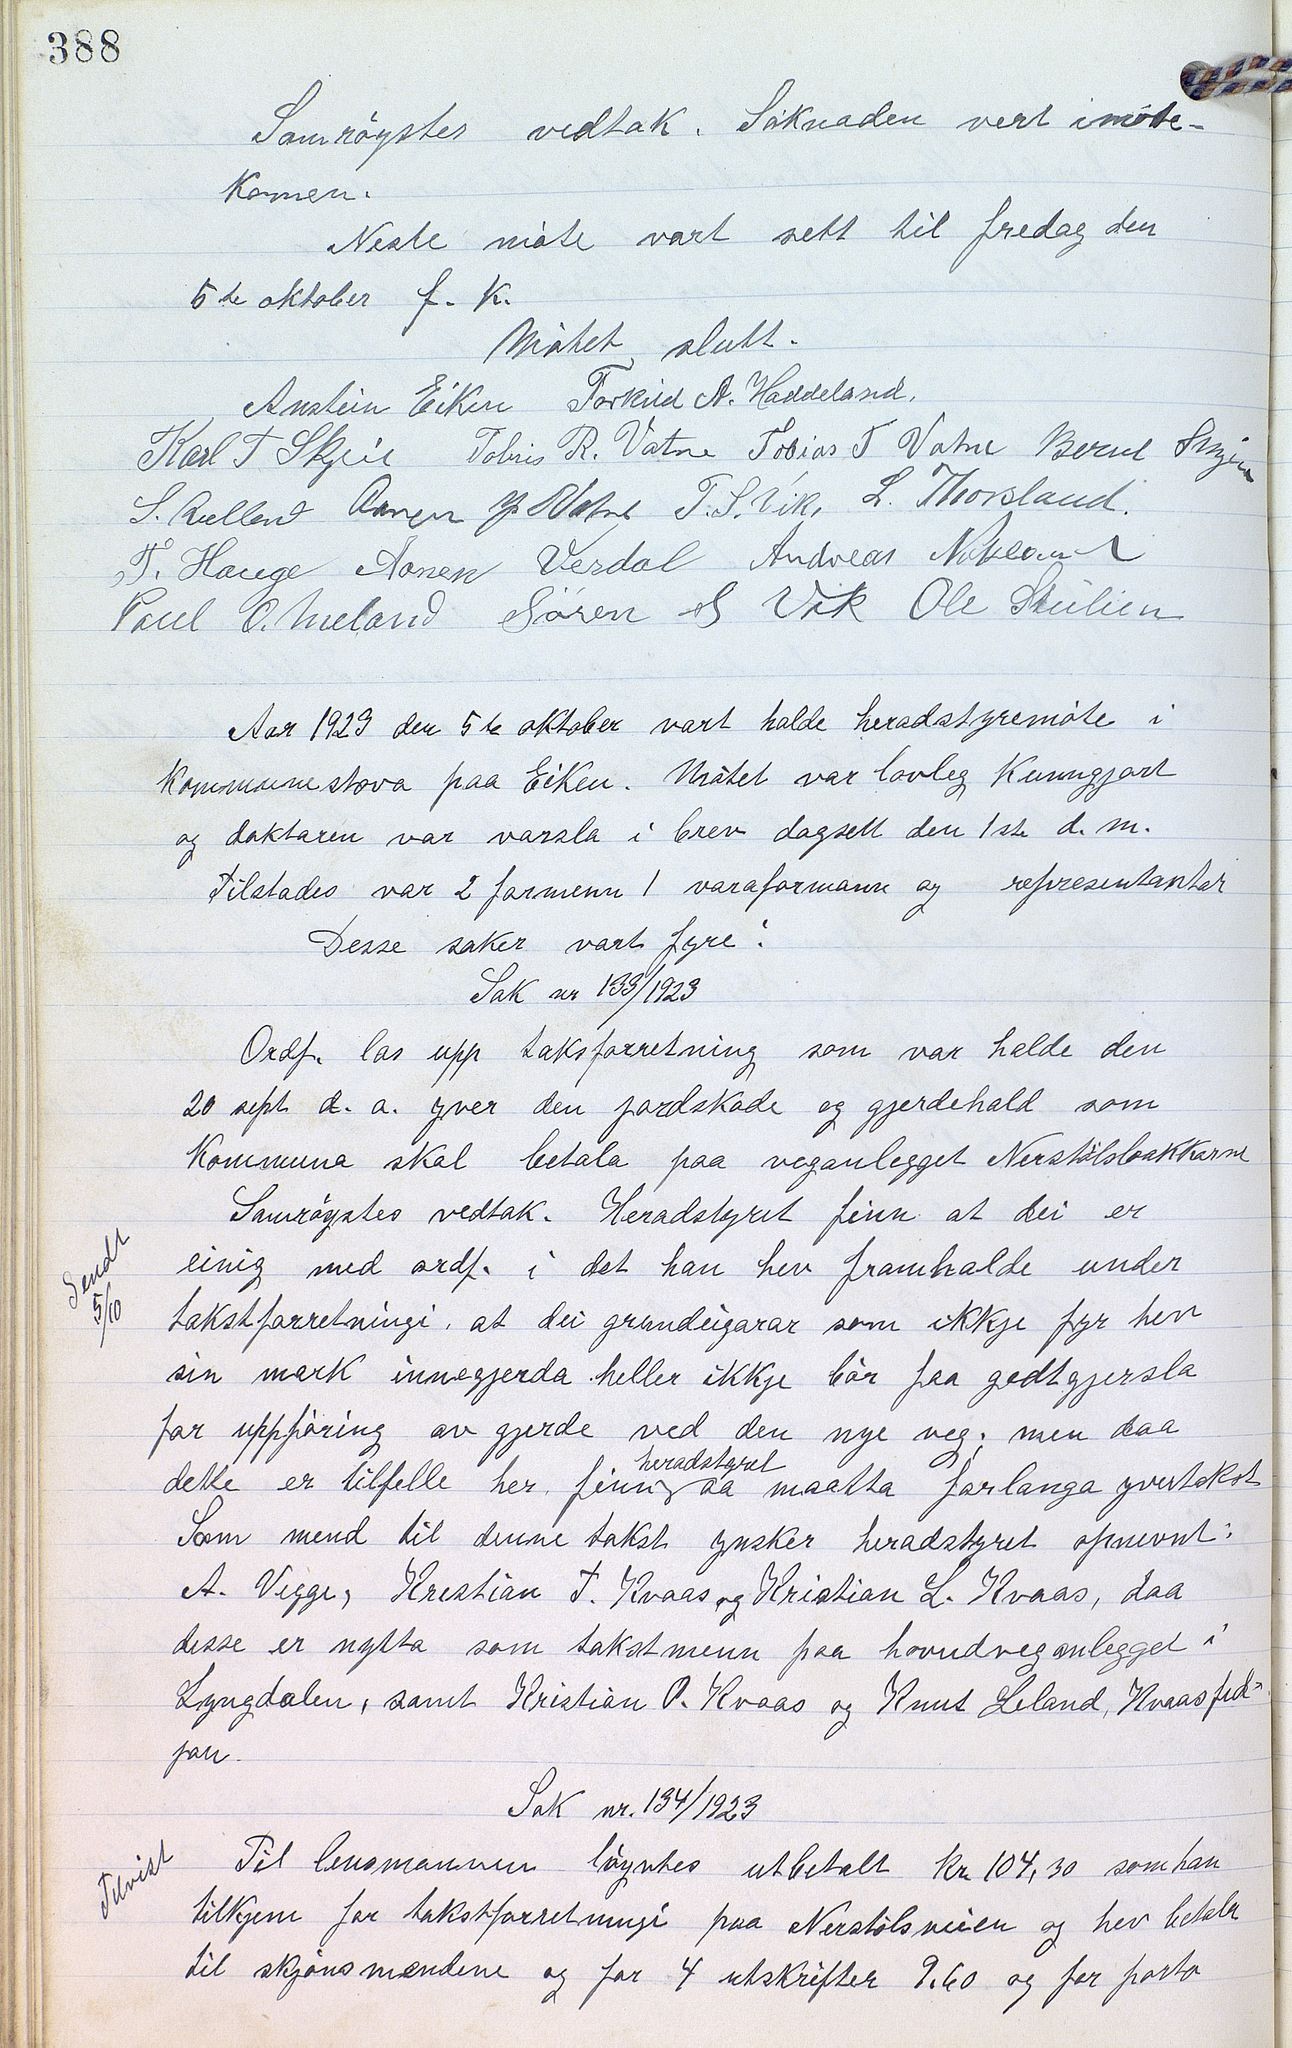 388
Samrøystes vedtak. Søknaden vert imøte-
komen.
Neste møte vart sett til fredag den
5te oktober f. k.
Møtet slutt.
Anstein Eiken Torkild A. Haddeland.
Karl T Skjeie Tobias R. Vatne Tobias T Vatne Bernt
S. Aanen P Vatne T. S. Vik, L. Thorsland.
T. Hauge Aanen Verdal Andreas
Paul O. Meland Søren S Vik Ole
Aar 1923 den 5te oktober vart halde heradstyremøte i
kommunestova paa Eiken. Møtet var lovleg kunngjort
og doktaren var varsla i brev dagsett den 1ste d. m.
Tilstades var 2 formenn 1 varaformann og representantar
Desse saker vart fyre:
Sak nr 133/1923
Ordf. las upp taksforretning som var halde den
20 sept d. a. yver den jordskade og gjerdehald som
kommuna skal betala paa veganlegget Nerstølsbakkarne
Samrøystes vedtak. Heradstyret finn at dei er
einig med ordf. i det han hev framhalde under
takstforretningi, at dei grundeigarar som ikkje fyr hev
sin mark innegjerda heller ikkje bør faa godtgjersla
for uppføring av gjerde ved den nye veg; men daa
dette er tilfelle her, finn heradstyret aa maatta forlanga yvertakst
Som mend til denne takst ynsker heradstyret opnevnt:
A. Vegge, Kristian T. Kvaas og Kristian L. Kvaas, daa
disse er nytta som takstmenn paa hovudveganlegget i
Lyngdalen, samt Kristian P. Kvaas og Knut Leland, Kvaasfed-
jan.
Sendt
5/10
Sak nr. 134/1923
Til lensmannen løyvtes utbetalt kr 104,30 som han
tilkjem for takstforretningi paa Nerstølsveien og hev betala
til skjønsmændene og for 4 utskrifter 9.60 og for porto
Tilvist